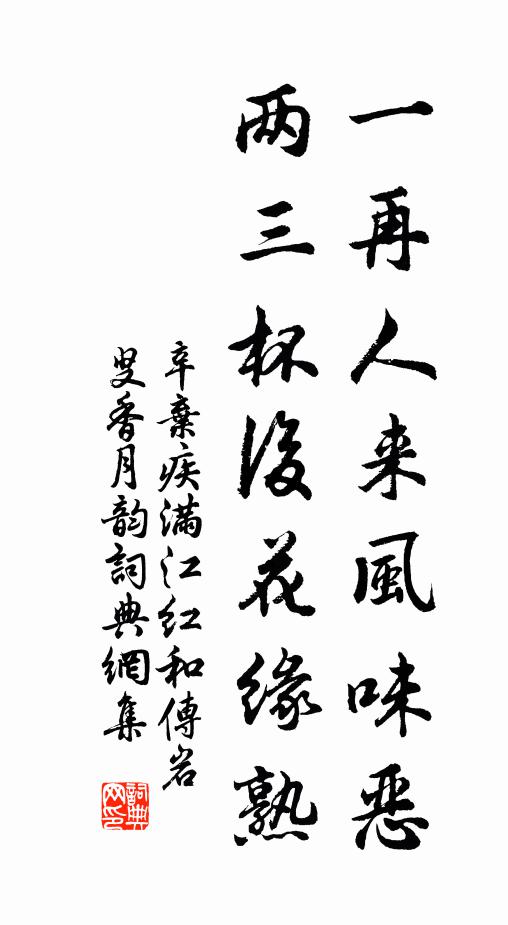 一再人来風味惡
两三杯後花緣熟
辛棄疾满江红和傅岩
叟香月韵詞典網集
詞典网印